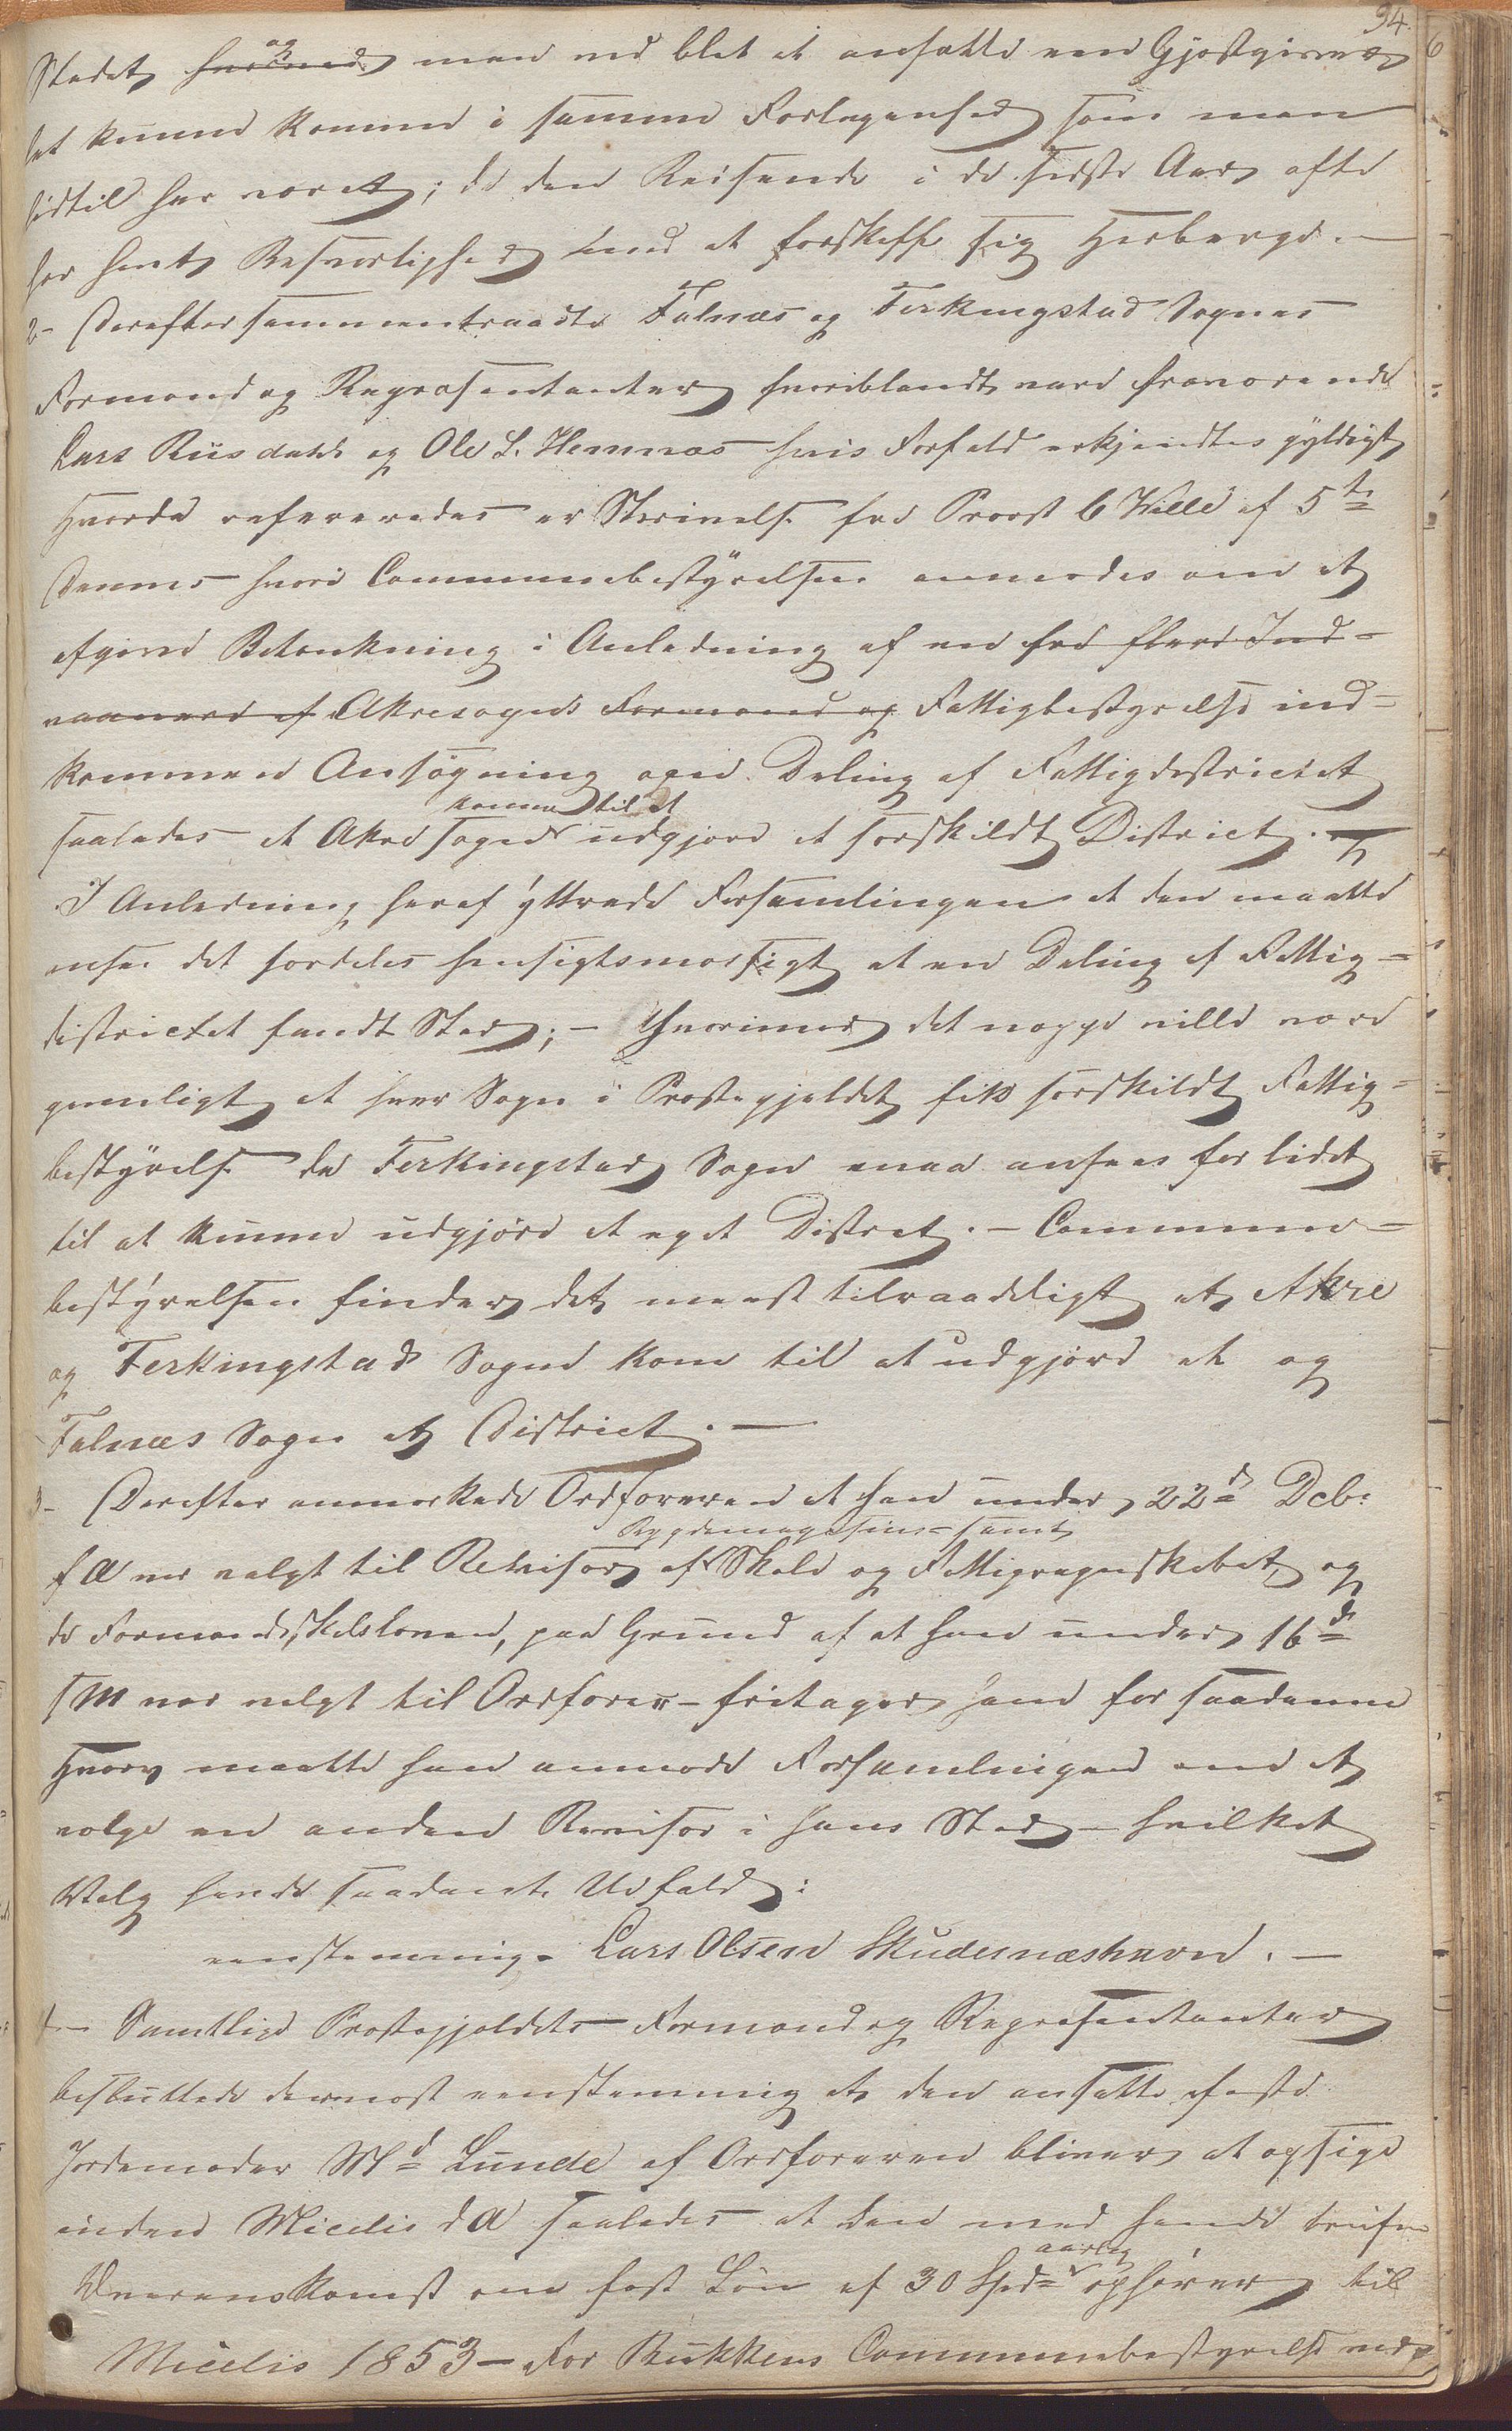 94.
Stedet, ~~hvorved~~ og man ved blot at ansætte een Gjæstgiver
let kunne komme i samme Forlegenhed som man
hidtil har været; da den Reisende i de sidste Aar ofte
har havt Besværlighed med at forskaffe sig Herberge. —
2- Derefter sammentraadte Falnæs og Ferkingstad Sognes
Formænd og Repræsentanter, hvoriblandt vare fraværende
Lars Riisdahl og Ole L. Hemnæs hvis Forfald erkjendtes gyldigt
Hvorda refereredes en Skrivelse fra Provst C Wille af 5te
Dennes hvori Communebestyrelsen anmodes om at
afgive Betænkning i Anledning af en ~~fra flere Ind-~~
~~vaanere af~~ Akresogns ~~Formænd og~~ Fattigbestyrelse ind-
kommen Ansøgning om Deling af Fattigdistrictet
saaledes at Akre Sogn kommer til at udgjøre et særskildt District. ~~og~~
I Anledning heraf yttrede Forsamlingen at den maatte
ansee det særdeles hensigtsmæssigt at en Deling af Fattig-
districtet fandt Sted; — Hvorimod det neppe vilde være
gavnligt at hver Sogn i Præstegjeldet fik særskildt Fattig-
bestyrelse da Ferkingstad Sogn maa ansees for lidet
til at kunne udgjøre et eget Distrct. — Commune-
bestyrelsen finder det meest tilraadeligt at Akre
og Ferkingstads Sogne kom til at udgjøre et og
Falnæs Sogn et District. —
3- Derefter anmærkede Ordføreren at han under 22de Dcb:
f A var valgt til Revisor af Bygdemagasins- samt Skole og Fattigregnskabet og
da Formandskabsloven, paa Grund af at han under 16de
s M var valgt til Ordfører — fritager ham for saadanne
Hverv maatte han anmode Forsamlingen om at
vælge en anden Revisor i hans Sted — hvilket
Valg havde saadant Udfald:
eenstemmig. Lars Olsen Skudesnæshavn. —
4- Samtlige Præstegjeldets Formænd og Repræsentanter
besluttede dernæst eenstemmig at den ansatte faste
Jordemoder Md Lunde af Ordføreren bliver at opsige
inden Micelis d A saaledes at den med hende trufne
Overenskomst om fast Løn af 30 Spd aarlig ophører til
Micelis 1853 — For Bukkens Communebestyrelse ved